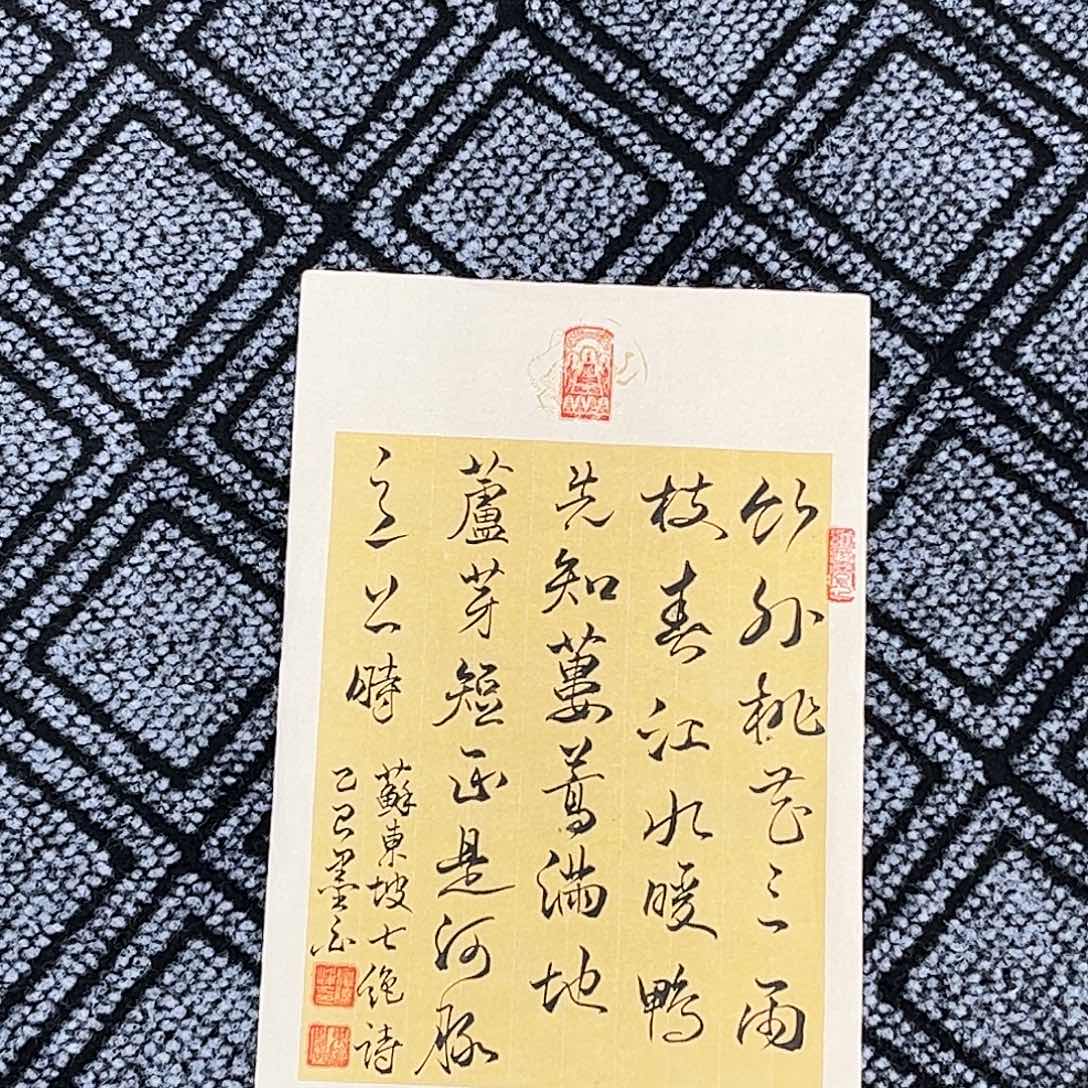 竹外桃花三兩
枝春江水暖鴨
先知蔞蒿滿地
蘆芽短正是河豚
上時
蘇東坡七絕詩
乙巳墨